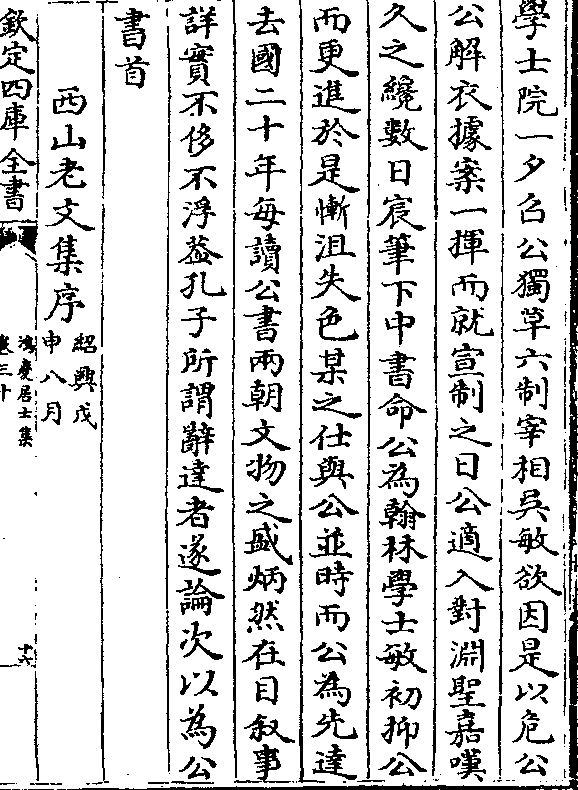 學士院一夕召公獨草六制宰相吳敏欲因是以危公
公解衣據案一揮而就宣制之日公適入對淵聖嘉嘆
久之纔數日宸筆下中書命公為翰林學士敏初抑公
而更進於是慚沮失色某之仕與公並時而公為先達
去國二十年每讀公書兩朝文物之盛炳然在目叙事
詳實不侈不浮葢孔子所謂辭達者遂論次以為公
書首
西山老文集序紹興戊
申八月
欽定四庫全書
鴻慶居士集
卷三十
十六